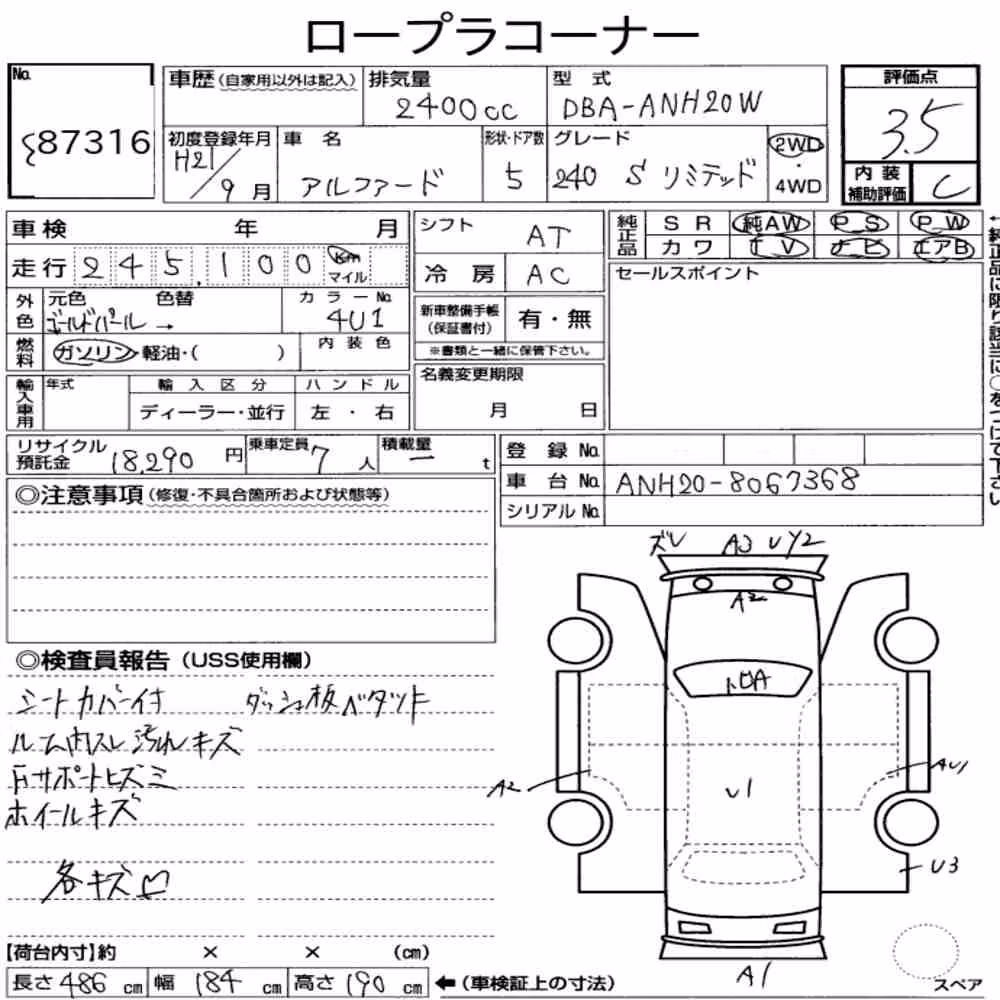 ロープラコーナー
No.
87316
車歴(自家用以外は記入)
排気量
2400cc
型式
DBA-ANH20W
評価点
3.5
初度登録年月
H21/9月
車名
アルファード
形状・ドア数
5
グレード
240 S リミテッド
2WD
・
4WD
内装
補助評価
C
車検 年 月
走行 245,100 km
マイル
外色
元色 色替
ゴールドパール →
カラーNo.
4U1
燃料
ガソリン・軽油・( )
内装色
輸入車用
年式
輸入区分
ディーラー・並行
ハンドル
左・右
シフト
AT
冷房
AC
新車整備手帳
(保証書付)
有・無
※書類と一緒に保管下さい。
名義変更期限
月 日
純正品
SR 純AW P_S P_W
カワ T V ナビ エアB
セールスポイント
←純正品に限り該当に○をつけて下さい
リサイクル
預託金
18,290 円
乗車定員
7 人
積載量
ー t
登録No.
車台No. ANH20-8067368
シリアルNo.
◎注意事項(修復・不具合箇所および状態等)
◎検査員報告(USS使用欄)
シートカバー付
ダッシュ板ベタツキ
ルーム内スレ汚れキズ
Fサポートヒズミ
ホイールキズ
各キズ凹
ズレ A3 UY2
A2
トビA
A2
U1
AU1
U3
A1
スペア
【荷台内寸】約 × × (cm)
長さ486cm 幅184cm 高さ190cm ←(車検証上の寸法)